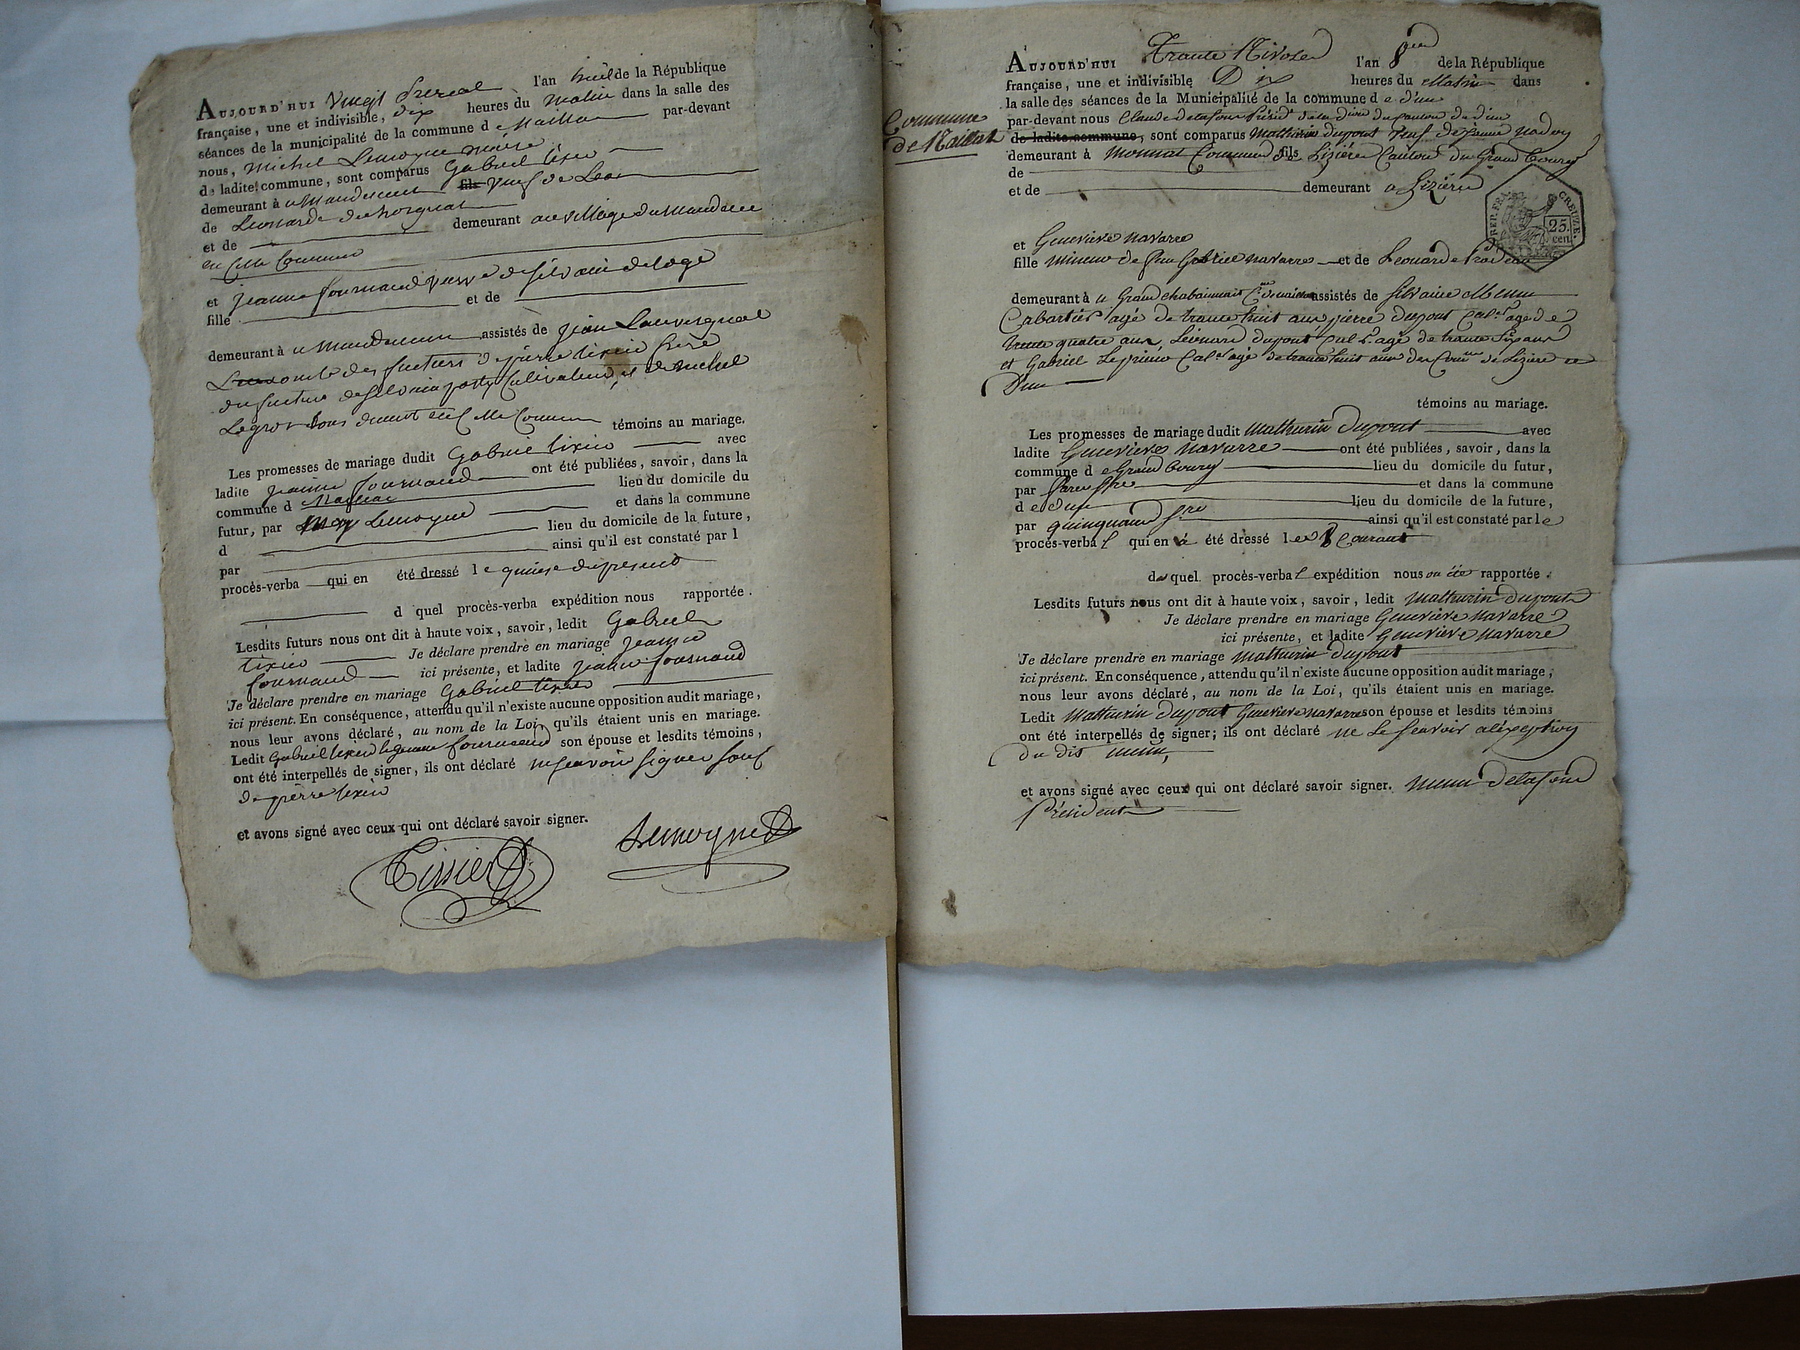 AUJOURD'HUI vingt floreal l'an huit de la République
française, une et indivisible, dix heures du matin dans la salle des
séances de la municipalité de la commune d e Maillat par-devant
nous, Michel Lemoyne maire
de ladite commune, sont comparus Gabriel tixier
demeurant à u Mandement fils veuf de Leo
de Leonarde
et de demeurant au village du
en cette Commune
et jeanne fournaud veuve de silvain deloge
fille et de
demeurant à u assistés de jean Lauvergnat
oncle des futurs de pierre tixier frère
du futur de silvain cultivateurs, et de michel
Legros tous demt en cette Commune témoins au mariage.
Les promesses de mariage dudit Gabriel tixier avec
ladite jeanne fournaud ont été publiées, savoir, dans la
commune d lieu du domicile du
futur, par Lemoyne et dans la commune
d lieu du domicile de la future,
par ainsi qu'il est constaté par l
procès-verba qui en été dressé l e quinse du present
d quel procès-verba expédition nous rapportée.
Lesdits futurs nous ont dit à haute voix, savoir, ledit Gabriel
tixier Je déclare prendre en mariage jeanne
fournaud ici présente, et ladite jeanne fournaud
Je déclare prendre en mariage Gabriel tixier
ici présent. En conséquence, attendu qu'il n'existe aucune opposition audit mariage,
nous leur avons déclaré, au nom de la Loi, qu'ils étaient unis en mariage.
Ledit Gabriel tixier jeanne fournaud son épouse et lesdits témoins,
ont été interpellés de signer, ils ont déclaré ne scavoir signer sauf
de pierre tixier
et avons signé avec ceux qui ont déclaré savoir signer.
Tixier Lemoyne
Commune
de Maillat
AUJOURD'HUI Trante Nivose l'an 8 de la République
française, une et indivisible Dix heures du Matin dans
la salle des séances de la Municipalité de la commune d e d'un
par-devant nous Claude delafond Présidt de canton de d'un
de ladite commune, sont comparus Mathurin dupont veuf de janne nadon
demeurant à Monnat Commune de fils Lizière Canton du Grand bourg
de
et de demeurant a Lizière
REP. FRA. CREUZE.
25.
cen.
et Genevieve navarre
fille Mineur de feu Gabriel navarre et de Leonarde
demeurant à u Grand assistés de Silvaine Menu
Cabartier agé de trante huit ans pierre dupont Culr agé de
trente quatre ans, Léonard dupont Cul agé de trante six ans
et Gabriel Culr agé de trante huit ans des Comnes de Lizière et
D'un
témoins au mariage.
Les promesses de mariage dudit Mathurin dupont avec
ladite Genevieve navarre ont été publiées, savoir, dans la
commune d e Grand bourg lieu du domicile du futur,
par et dans la commune
d e d'un lieu du domicile de la future,
par quinquaud ainsi qu'il est constaté par l e
procès-verba l qui en a été dressé l e 8 Courant
du quel procès-verba l expédition nous a été rapportée.
Lesdits futurs nous ont dit à haute voix, savoir, ledit Mathurin dupont
Je déclare prendre en mariage Genevieve navarre
ici présente, et ladite Genevieve navarre
Je déclare prendre en mariage Mathurin dupont
ici présent. En conséquence, attendu qu'il n'existe aucune opposition audit mariage,
nous leur avons déclaré, au nom de la Loi, qu'ils étaient unis en mariage.
Ledit Mathurin dupont Genevieve navarre son épouse et lesdits témoins
ont été interpellés de signer; ils ont déclaré ne le scavoir aléxeption
du dit menu,
et avons signé avec ceux qui ont déclaré savoir signer. menu delafond
Président